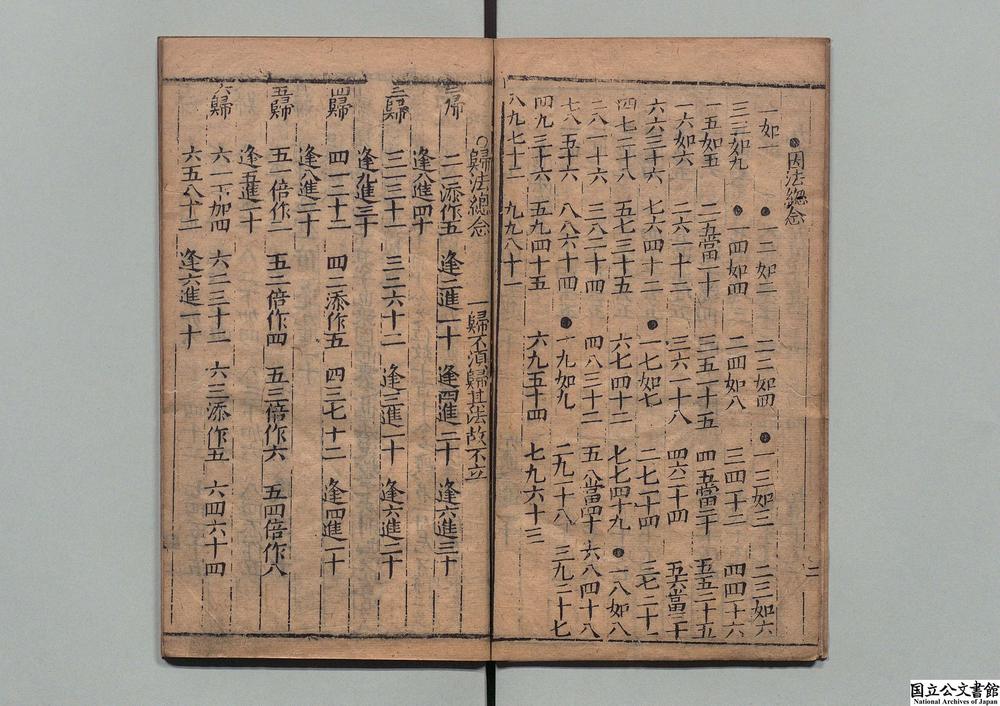 ●因法總念
一如一 ●一二如二 二二如四 ●一三如三 二三如六
三三如九 ●一四如四 二四如八 三四十二 四四十六
一五如五 二五當一十 三五一十五 四五當二十 五五二十五
一六如六 二六一十二 三六一十八 四六二十四 五六當三十
六六三十六 七六四十二 ●一七如七 二七一十四 三七二十一
四七二十八 五七三十五 六七四十二 七七四十九 ●一八如八
二八一十六 三八二十四 四八三十二 五八當四十 六八四十八
七八五十六 八八六十四 ●一九如九 二九一十八 三九二十七
四九三十六 五九四十五 六九五十四 七九六十三
八九七十二 九九八十一
二
○歸法總念 一歸不須歸其法故不立
二歸 二一添作五 逢二進一十 逢四進二十 逢六進三十
逢八進四十
三歸 三一三十一 三二六十二 逢三進一十 逢六進二十
逢九進三十
四歸 四一二十二 四二添作五 四三七十二 逢四進一十
逢八進二十
五歸 五一倍作二 五二倍作四 五三倍作六 五四倍作八
逢五進一十
六歸 六一下加四 六二三十二 六三添作五 六四六十四
六五八十二 逢六進一十
国立公文書館
National Archives of Japan